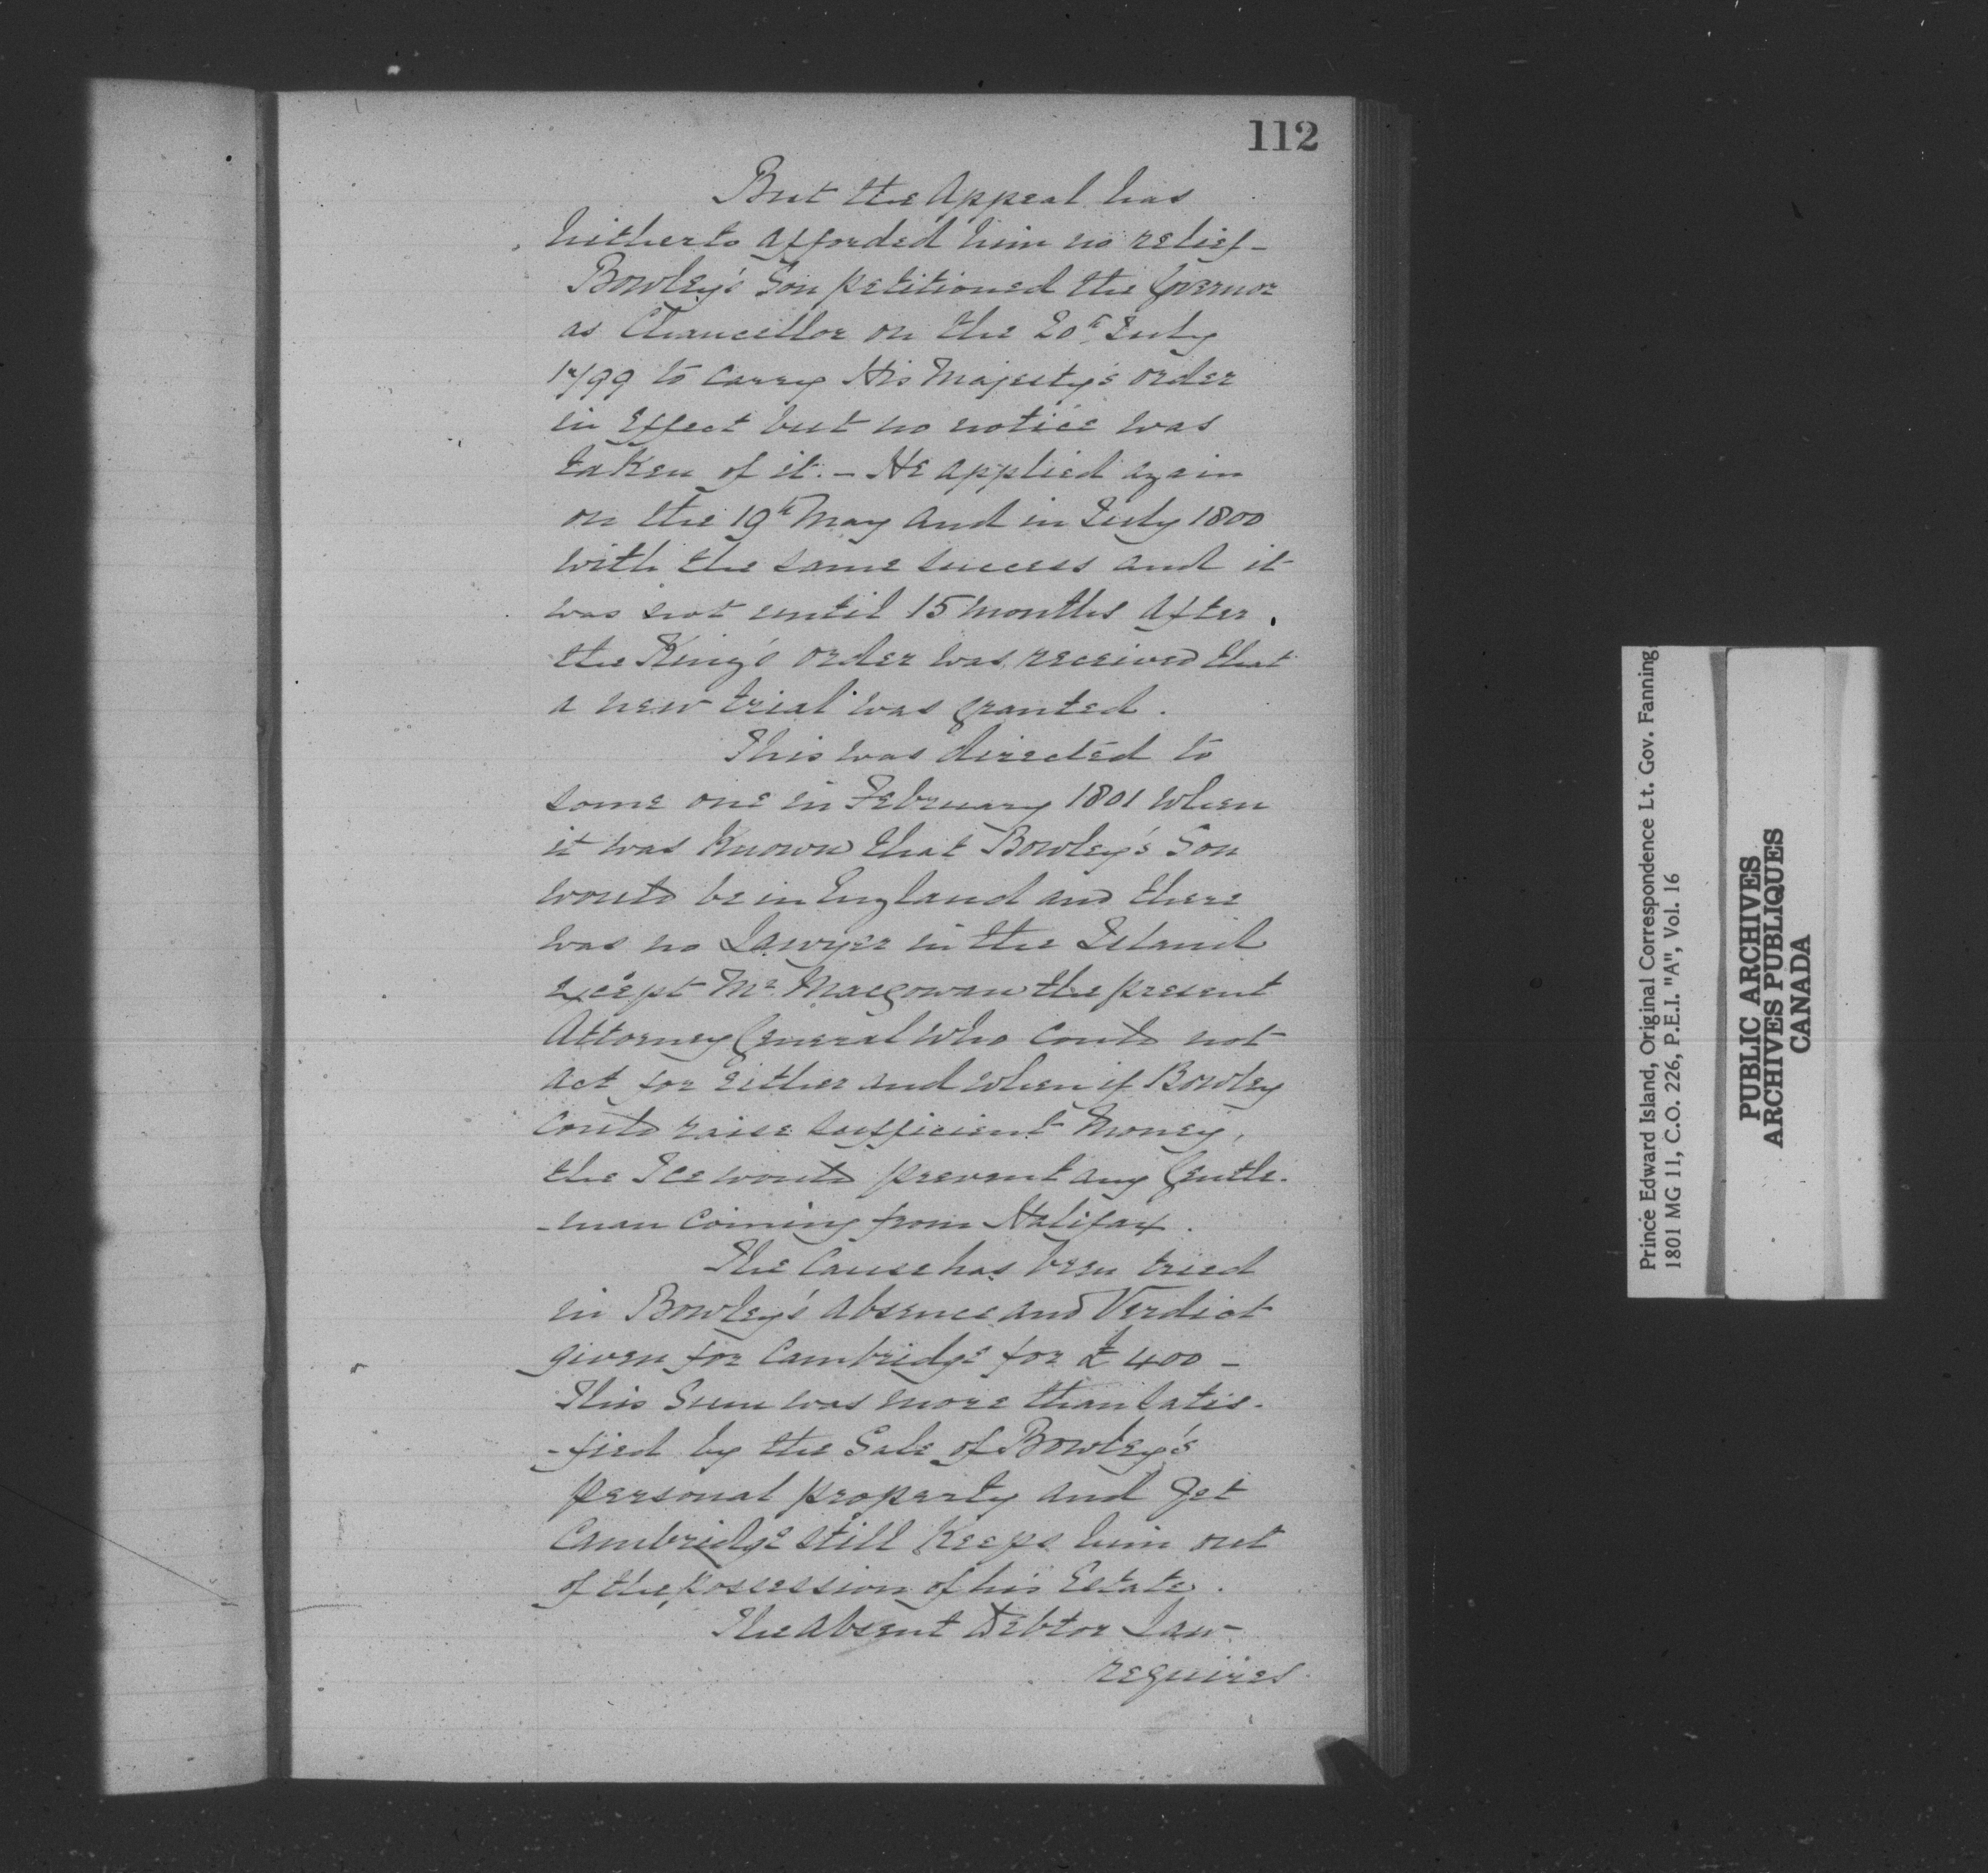 112
But the Appeal has
hitherto afforded him no relief -
Bowley's Son petitioned the Governor
as Chancellor on the 20th July
1799 to carry His Majesty's order
in Effect but no notice was
taken of it. - He applied again
on the 19th May and in July 1800
with the same success and it
was not until 15 months after
the King's order was received that
a new trial was granted.
This was directed to
some one in February 1801 when
it was known that Bowley's Son
would be in England and there
was no Lawyer in the Island
except Mr. Macgowan the present
Attorney General who could not
act for either and when if Bowley
could raise sufficient Money,
the Ice would prevent any Gentle-
-man coming from Halifax.
The Cause has been tried
in Bowley's absence and Verdict
given for Cambridge for £400 -
This Sum was more than satis-
-fied by the Sale of Bowley's
personal property and yet
Cambridge still keeps him out
of the possession of his Estate.
The Absent Debtor Law
requires
Prince Edward Island, Original Correspondence Lt. Gov. Fanning
1801 MG 11, C.O. 226, P.E.I. "A", Vol. 16
PUBLIC ARCHIVES
ARCHIVES PUBLIQUES
CANADA